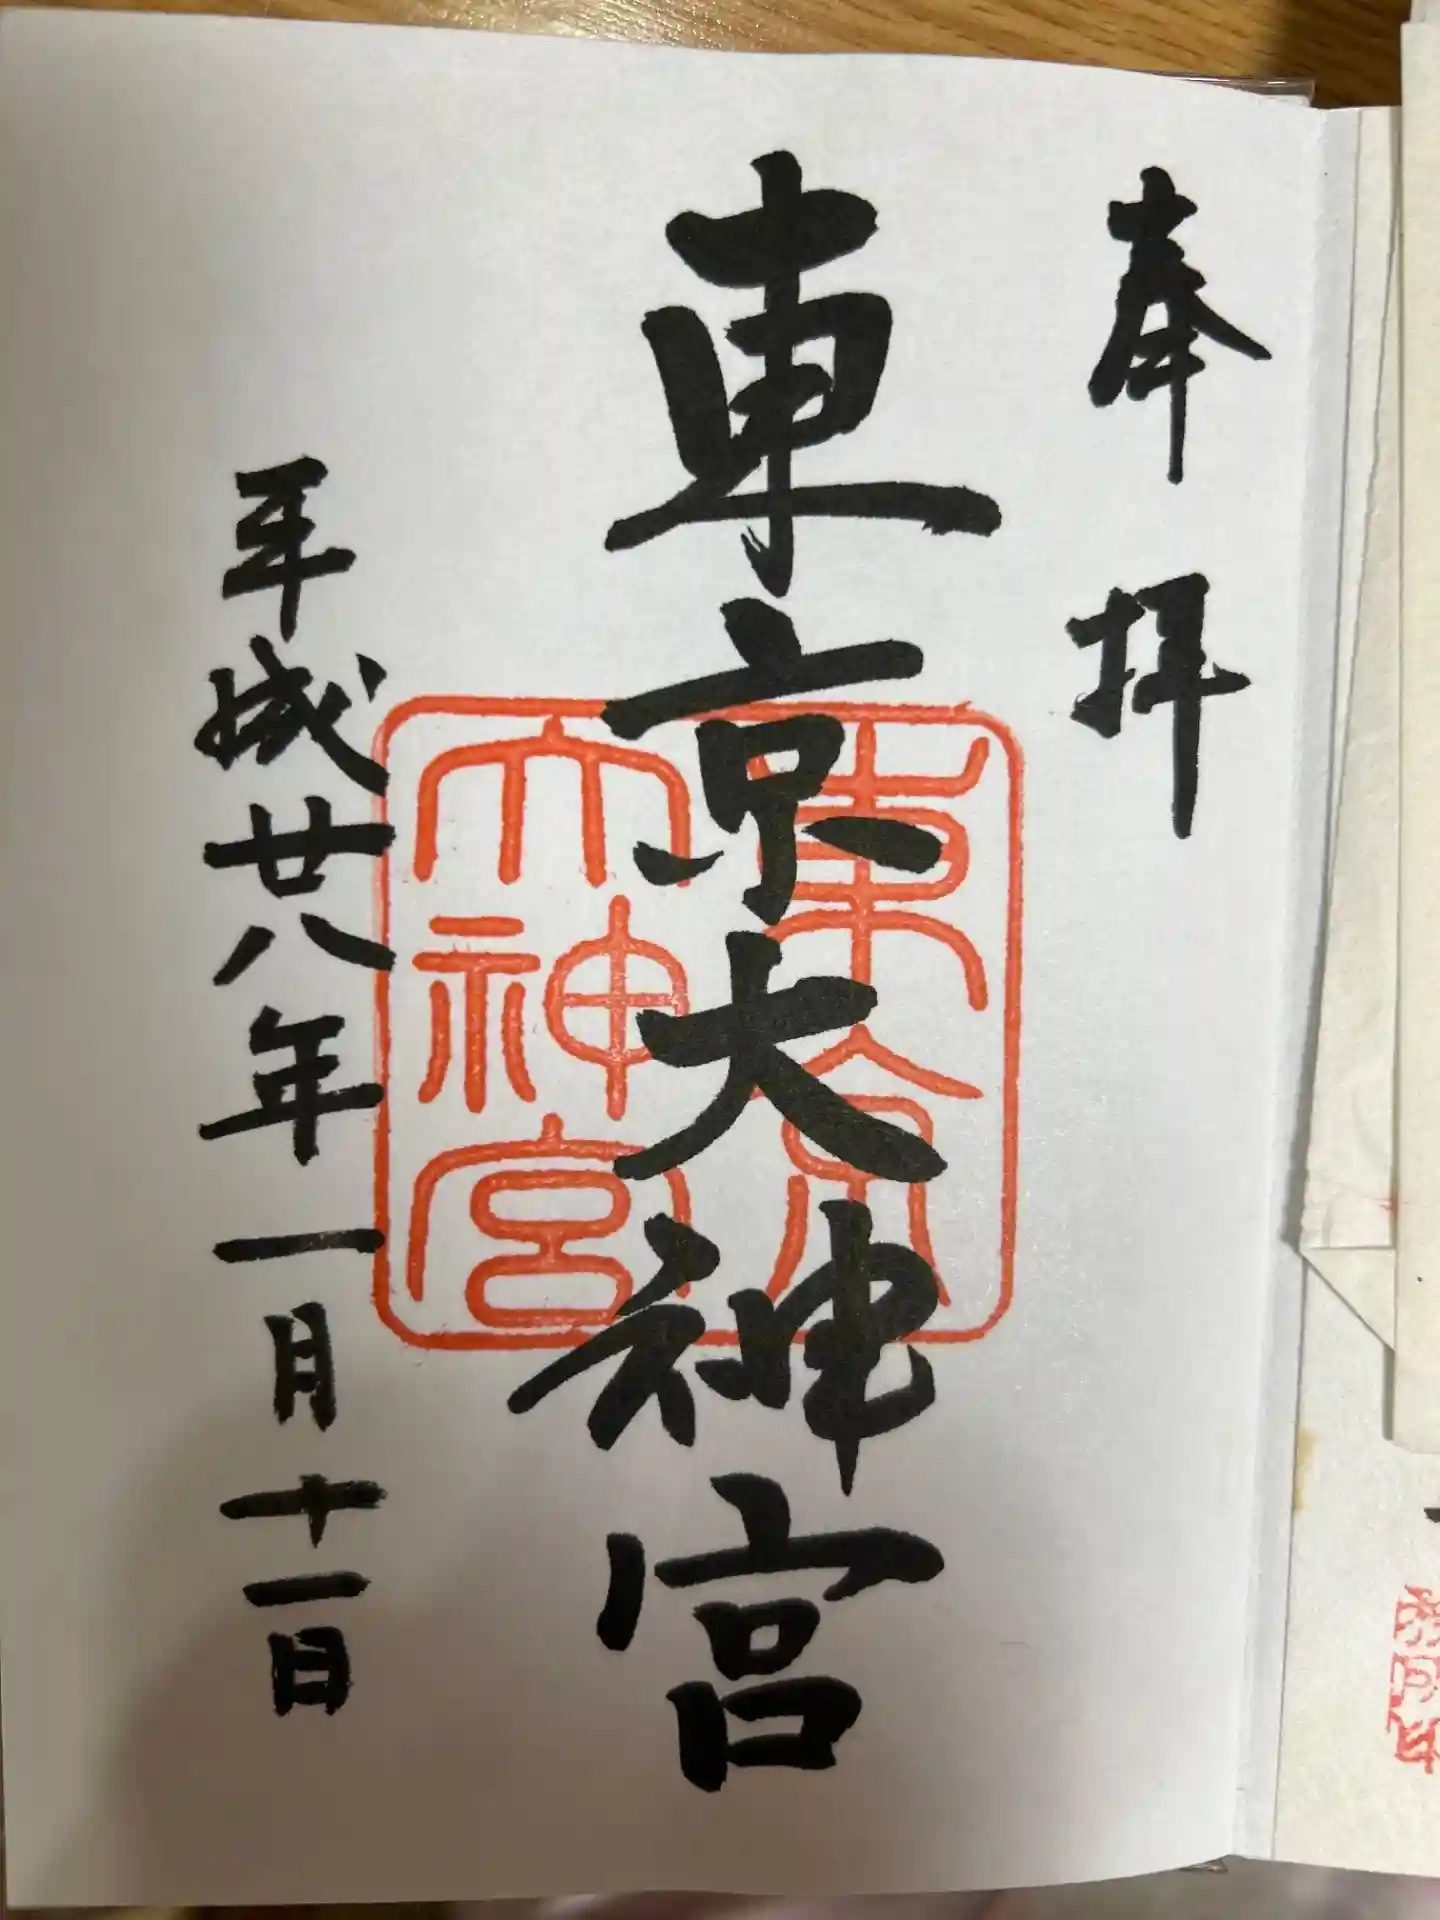 奉拝
東京大神宮
東京
大神宮
平成廿八年一月十一日